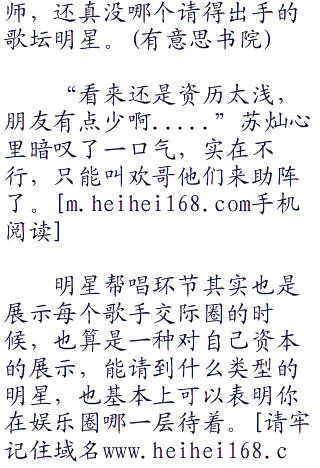 师，还真没哪个请得出手的
歌坛明星。(有意思书院)
“看来还是资历太浅，
朋友有点少啊.....”苏灿心
里暗叹了一口气，实在不
行，只能叫欢哥他们来助阵
了。[m.heihei168.com手机
阅读]
明星帮唱环节其实也是
展示每个歌手交际圈的时
候，也算是一种对自己资本
的展示，能请到什么类型的
明星，也基本上可以表明你
在娱乐圈哪一层待着。[请牢
记住域名www.heihei168.c